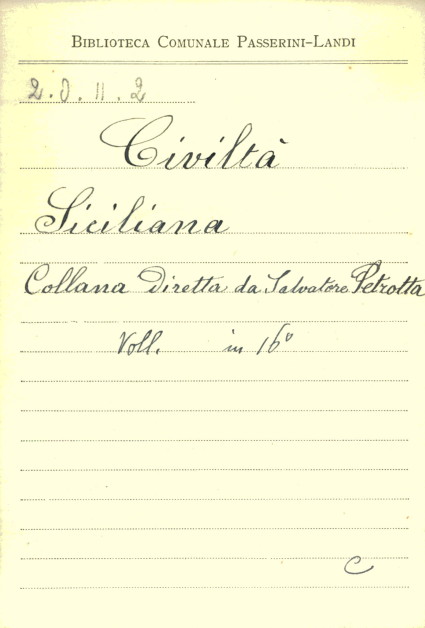 BIBLIOTECA COMUNALE PASSERINI-LANDI
2.O.11.2
Civiltà
Siciliana
Collana Diretta da Salvatore Petrotta
Voll. in 16º
C